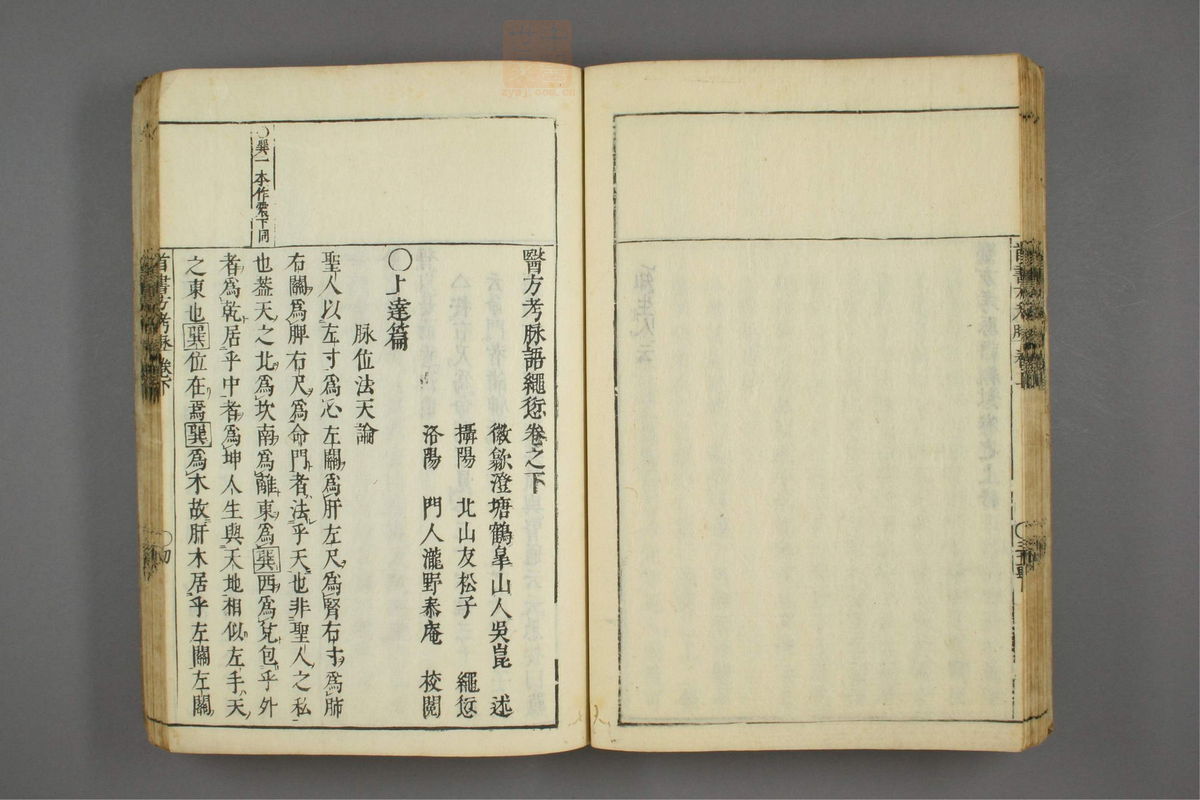 醫方考脉語繩愆卷之下
徽歙澄塘鶴皐山人吳崑 述
攝陽 北山友松子 繩愆
洛陽 門人瀧野泰庵 校閱
○上達篇
脉位法天論
聖人以左寸爲心左關爲肝左尺爲腎右寸爲肺
右關爲脾右尺爲命門者法乎天也非聖人之私
也葢天之北爲坎南爲離東爲巽西爲兌包乎外
者爲乾居乎中者爲坤人生與天地相似左手天
之東也巽位在焉巽爲木故肝木居乎左關左關
○巽一本作震下同
首書方考脉 卷下
zysj.com.cn